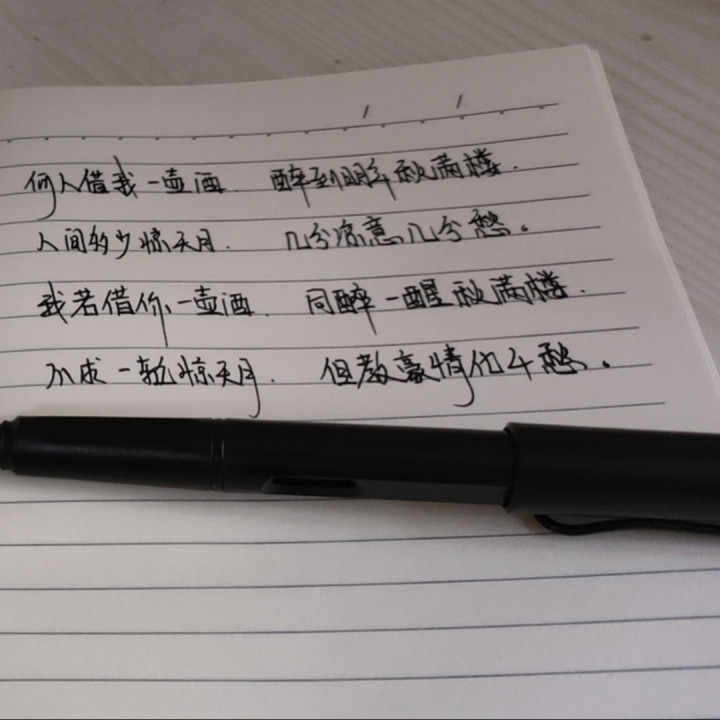 何人借我一壶酒. 醉到明年秋满楼.
人间多少惊天月. 几分凉意几分愁。
我若借你一壶酒. 同醉一醒秋满楼.
不求一轮惊天月. 但教豪情化千愁。